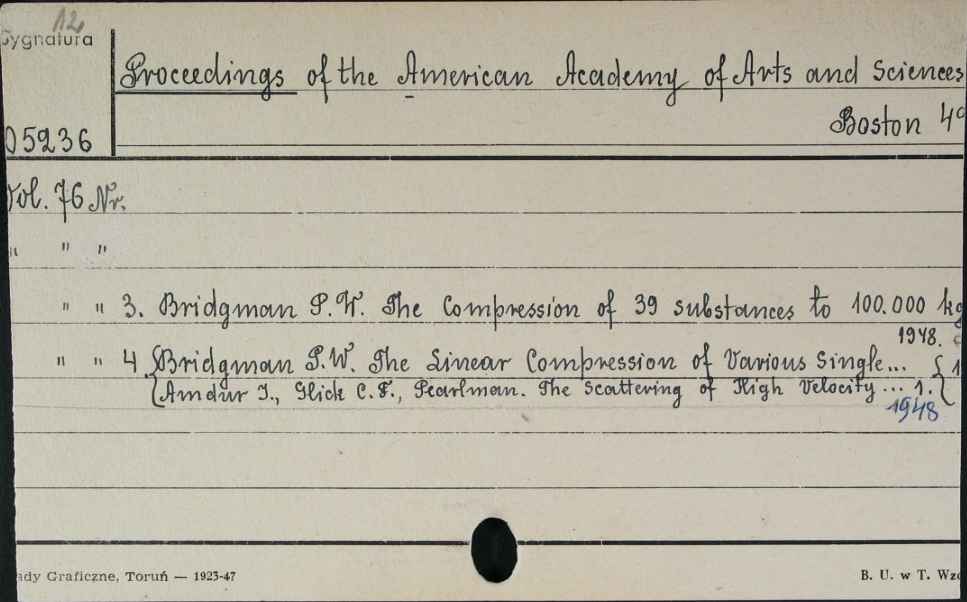 12
Sygnatura
Proceedings of the American Academy of Arts and Sciences
Boston 4°
05236
Vol. 76 Nr.
" " "
" " 3. Bridgman P.W. The Compression of 39 substances to 100.000 kg
1948.
" " 4. Bridgman P.W. The Linear Compression of Various Single...
Amdur I., Glick C.F., Pearlman. The Scattering of High Velocity... 1.
1948
ady Graficzne, Toruń — 1923-47
B. U. w T. Wzó